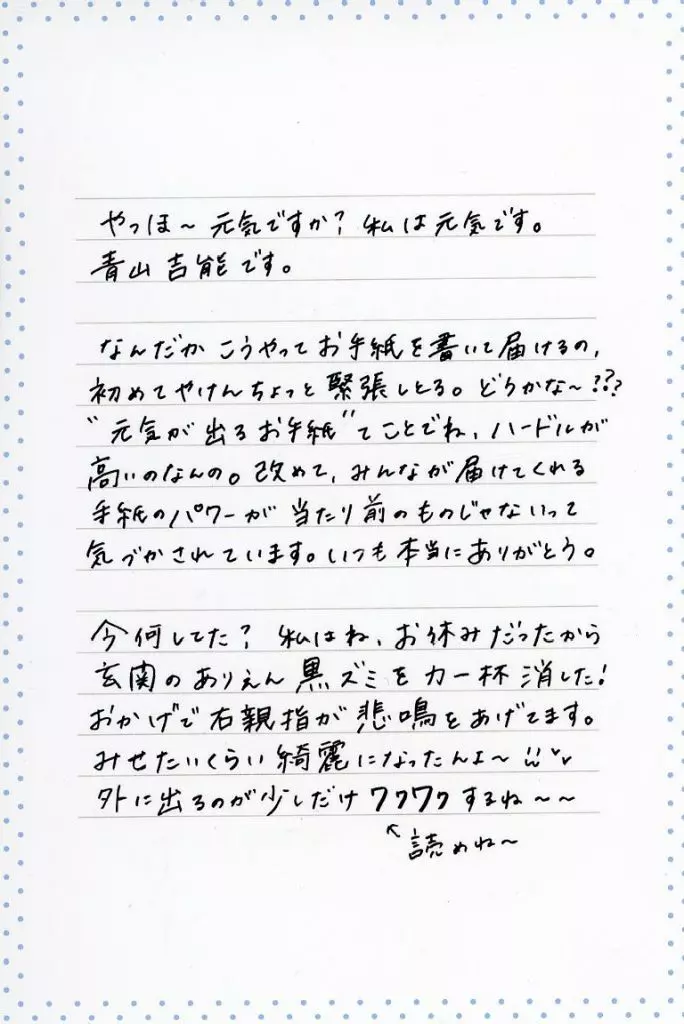 やっほ〜 元気ですか? 私は元気です。
青山吉能です。
なんだか こうやって お手紙を書いて届けるの、
初めてやけんちょっと緊張しとる。どうかな〜???
“元気が出るお手紙”てことでね、ハードルが
高いのなんの。改めて、みんなが届けてくれる
手紙のパワーが当たり前のものじゃないって
気づかされています。いつも本当にありがとう。
今何してた? 私はね、お休みだったから
玄関のありえん黒ズミを力一杯消した!
おかげで右親指が悲鳴をあげてます。
みせたいくらい綺麗になったんよ〜
外に出るのが少しだけワクワクするね〜〜
↖読めね〜